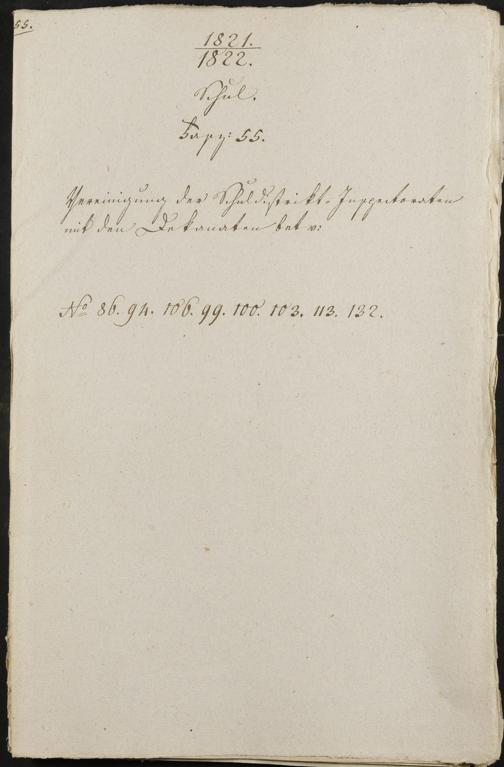 55.
1821.
1822.
Schul.
Fasz: 55.
Vereinigung der Schuldistrikt-Inspectoraten
mit den Dekanaten bet
No 86. 94. 106. 99. 100. 103. 113. 132.